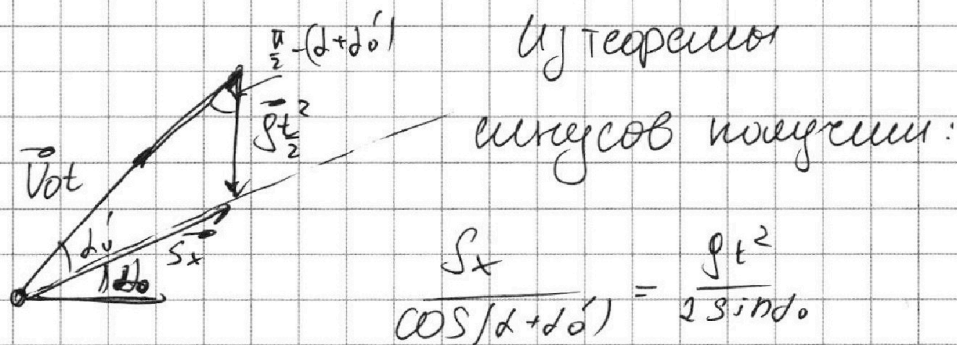 π/2 - (α + α₀')
Из теоремы
синусов получим:
V₀t
gt²/2
α₀'
Sₓ
Sₓ / cos(α + α₀') = gt² / 2 sinα₀